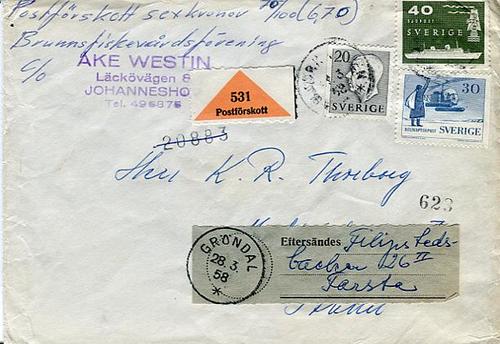 Postförskott sexkronor 70/100 (6,70)
Brunnsfiskevårdsförening
c/o
ÅKE WESTIN
Läckövägen 8
JOHANNESHO
Tel. 496876
531
Postförskott
20
SVERIGE
40
SVERIGE
30
SVERIGE
20883
Herr K. R. Thorborg
623
GRÖNDAL
28.3.
58
Eftersändes Filipsteds-
backen 26 II
Farsta